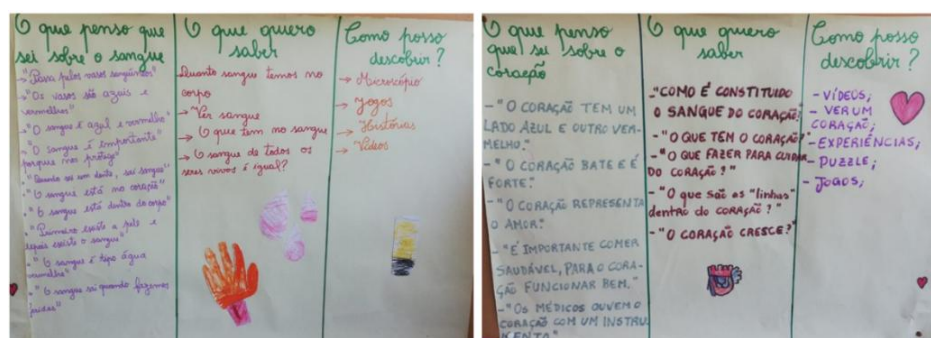 O que penso que
sei sobre o sangue
→ "Passa pelos vasos sanguíneos"
→ "Os vasos são azuis e
vermelhos"
→ "O sangue é azul e vermelho"
"O sangue é importante
porque nos protege"
"Quando cai um dente, sai sangue"
"O sangue está no coração"
"O sangue está dentro do corpo"
"Primeiro existe a pele e
depois existe o sangue"
"O sangue é tipo água
vermelha"
"O sangue sai quando fazemos
O que quero
saber
Quanto sangue temos no
corpo
→ Ver sangue
→ O que tem no sangue
→ O sangue de todos os
seres vivos é igual?
Como posso
descobrir?
→ Microscópio
→ Jogos
→ Histórias
→ Vídeos
O que penso
que sei sobre o
coração
- "O CORAÇÃO TEM UM
LADO AZUL E OUTRO VER-
MELHO."
- "O CORAÇÃO BATE E É
FORTE."
- "O CORAÇÃO REPRESENTA
O AMOR."
- "É IMPORTANTE COMER
SAUDÁVEL, PARA O CORA-
ÇÃO FUNCIONAR BEM."
- "OS MÉDICOS OUVEM O
CORAÇÃO COM UM INSTRU
MENTO."
O que quero
saber
- "COMO É CONSTITUIDO
O SANGUE DO CORAÇÃO?
- "O QUE TEM O CORAÇÃO?"
- "O QUE FAZER PARA CUIDAR
DO CORAÇÃO?"
- "O que são as "linhas"
dentro do CORAÇÃO?"
- "O CORAÇÃO CRESCE?"
Como posso
descobrir?
- VÍDEOS;
- VER UM
CORAÇÃO;
- EXPERIÊNCIAS;
- PUZZLE;
- JOGOS;